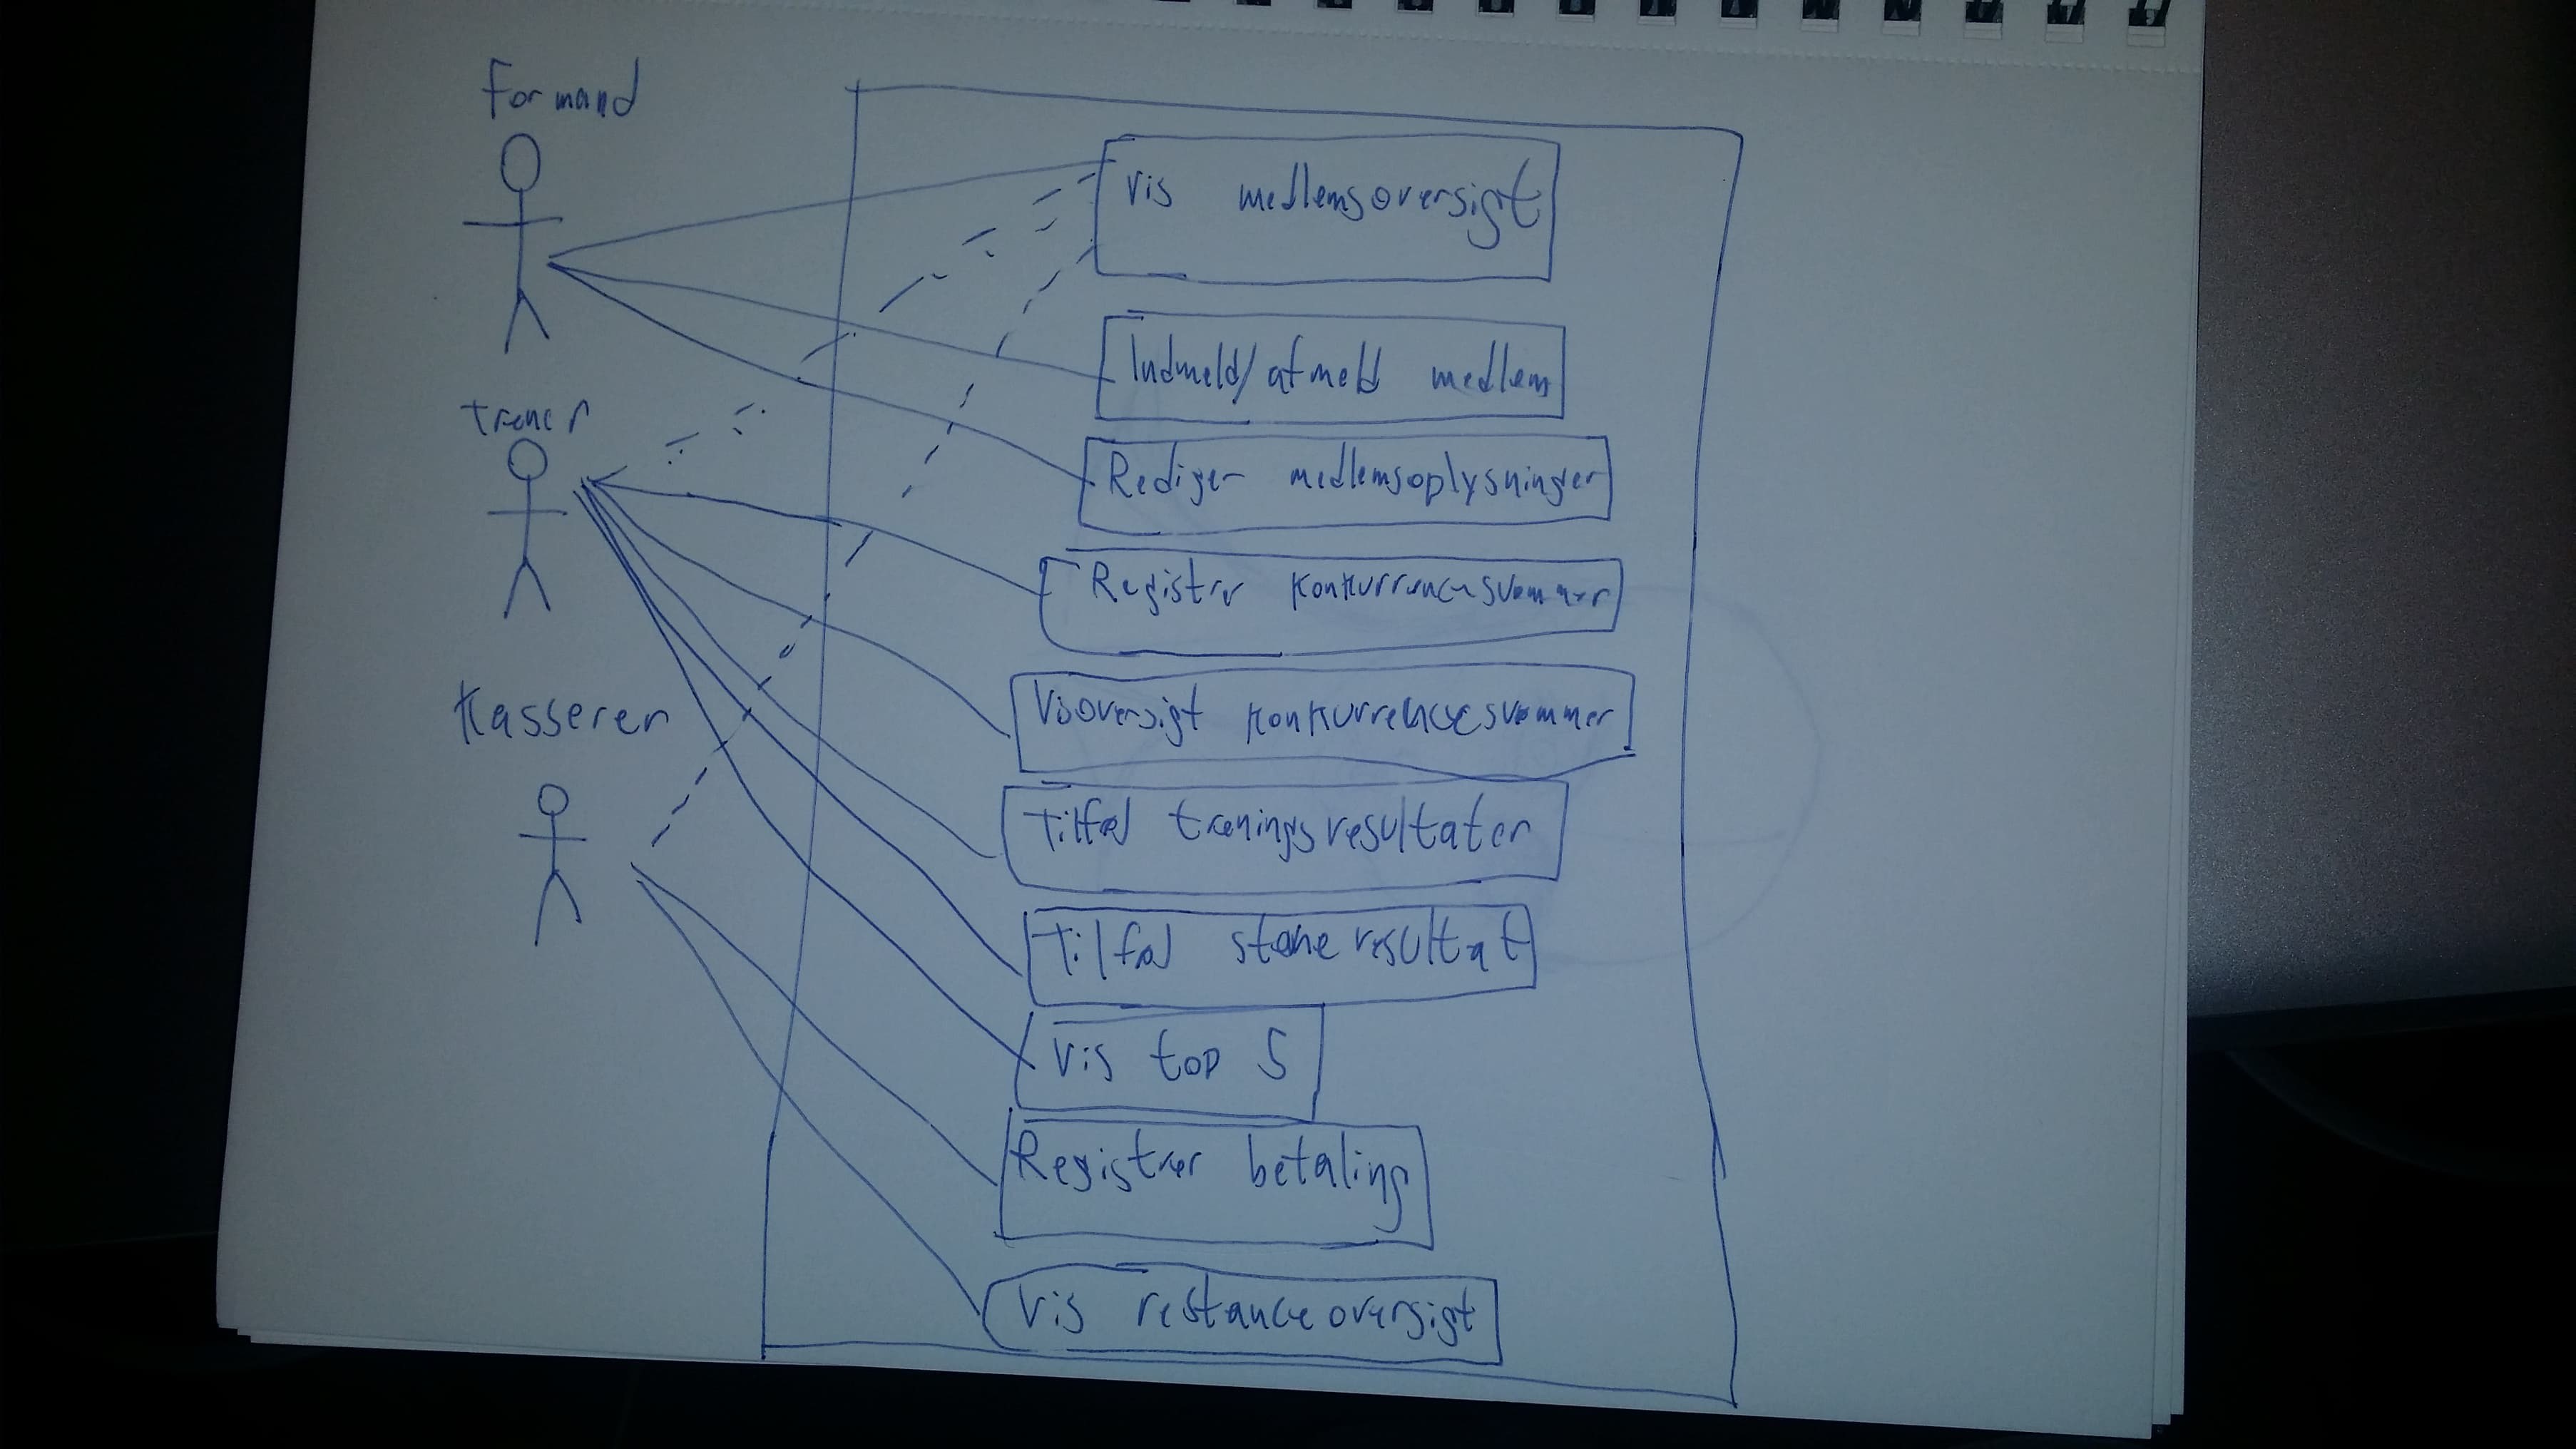 formand
Vis medlemsoversigt
Indmeld/afmeld medlem
træner
Rediger medlemsoplysninger
Registrer konkurrencesvømmer
Kasserer
Vis oversigt konkurrencesvømmer
Tilføj træningsresultater
Tilføj stævneresultat
Vis top 5
Registrer betaling
Vis restanceoversigt